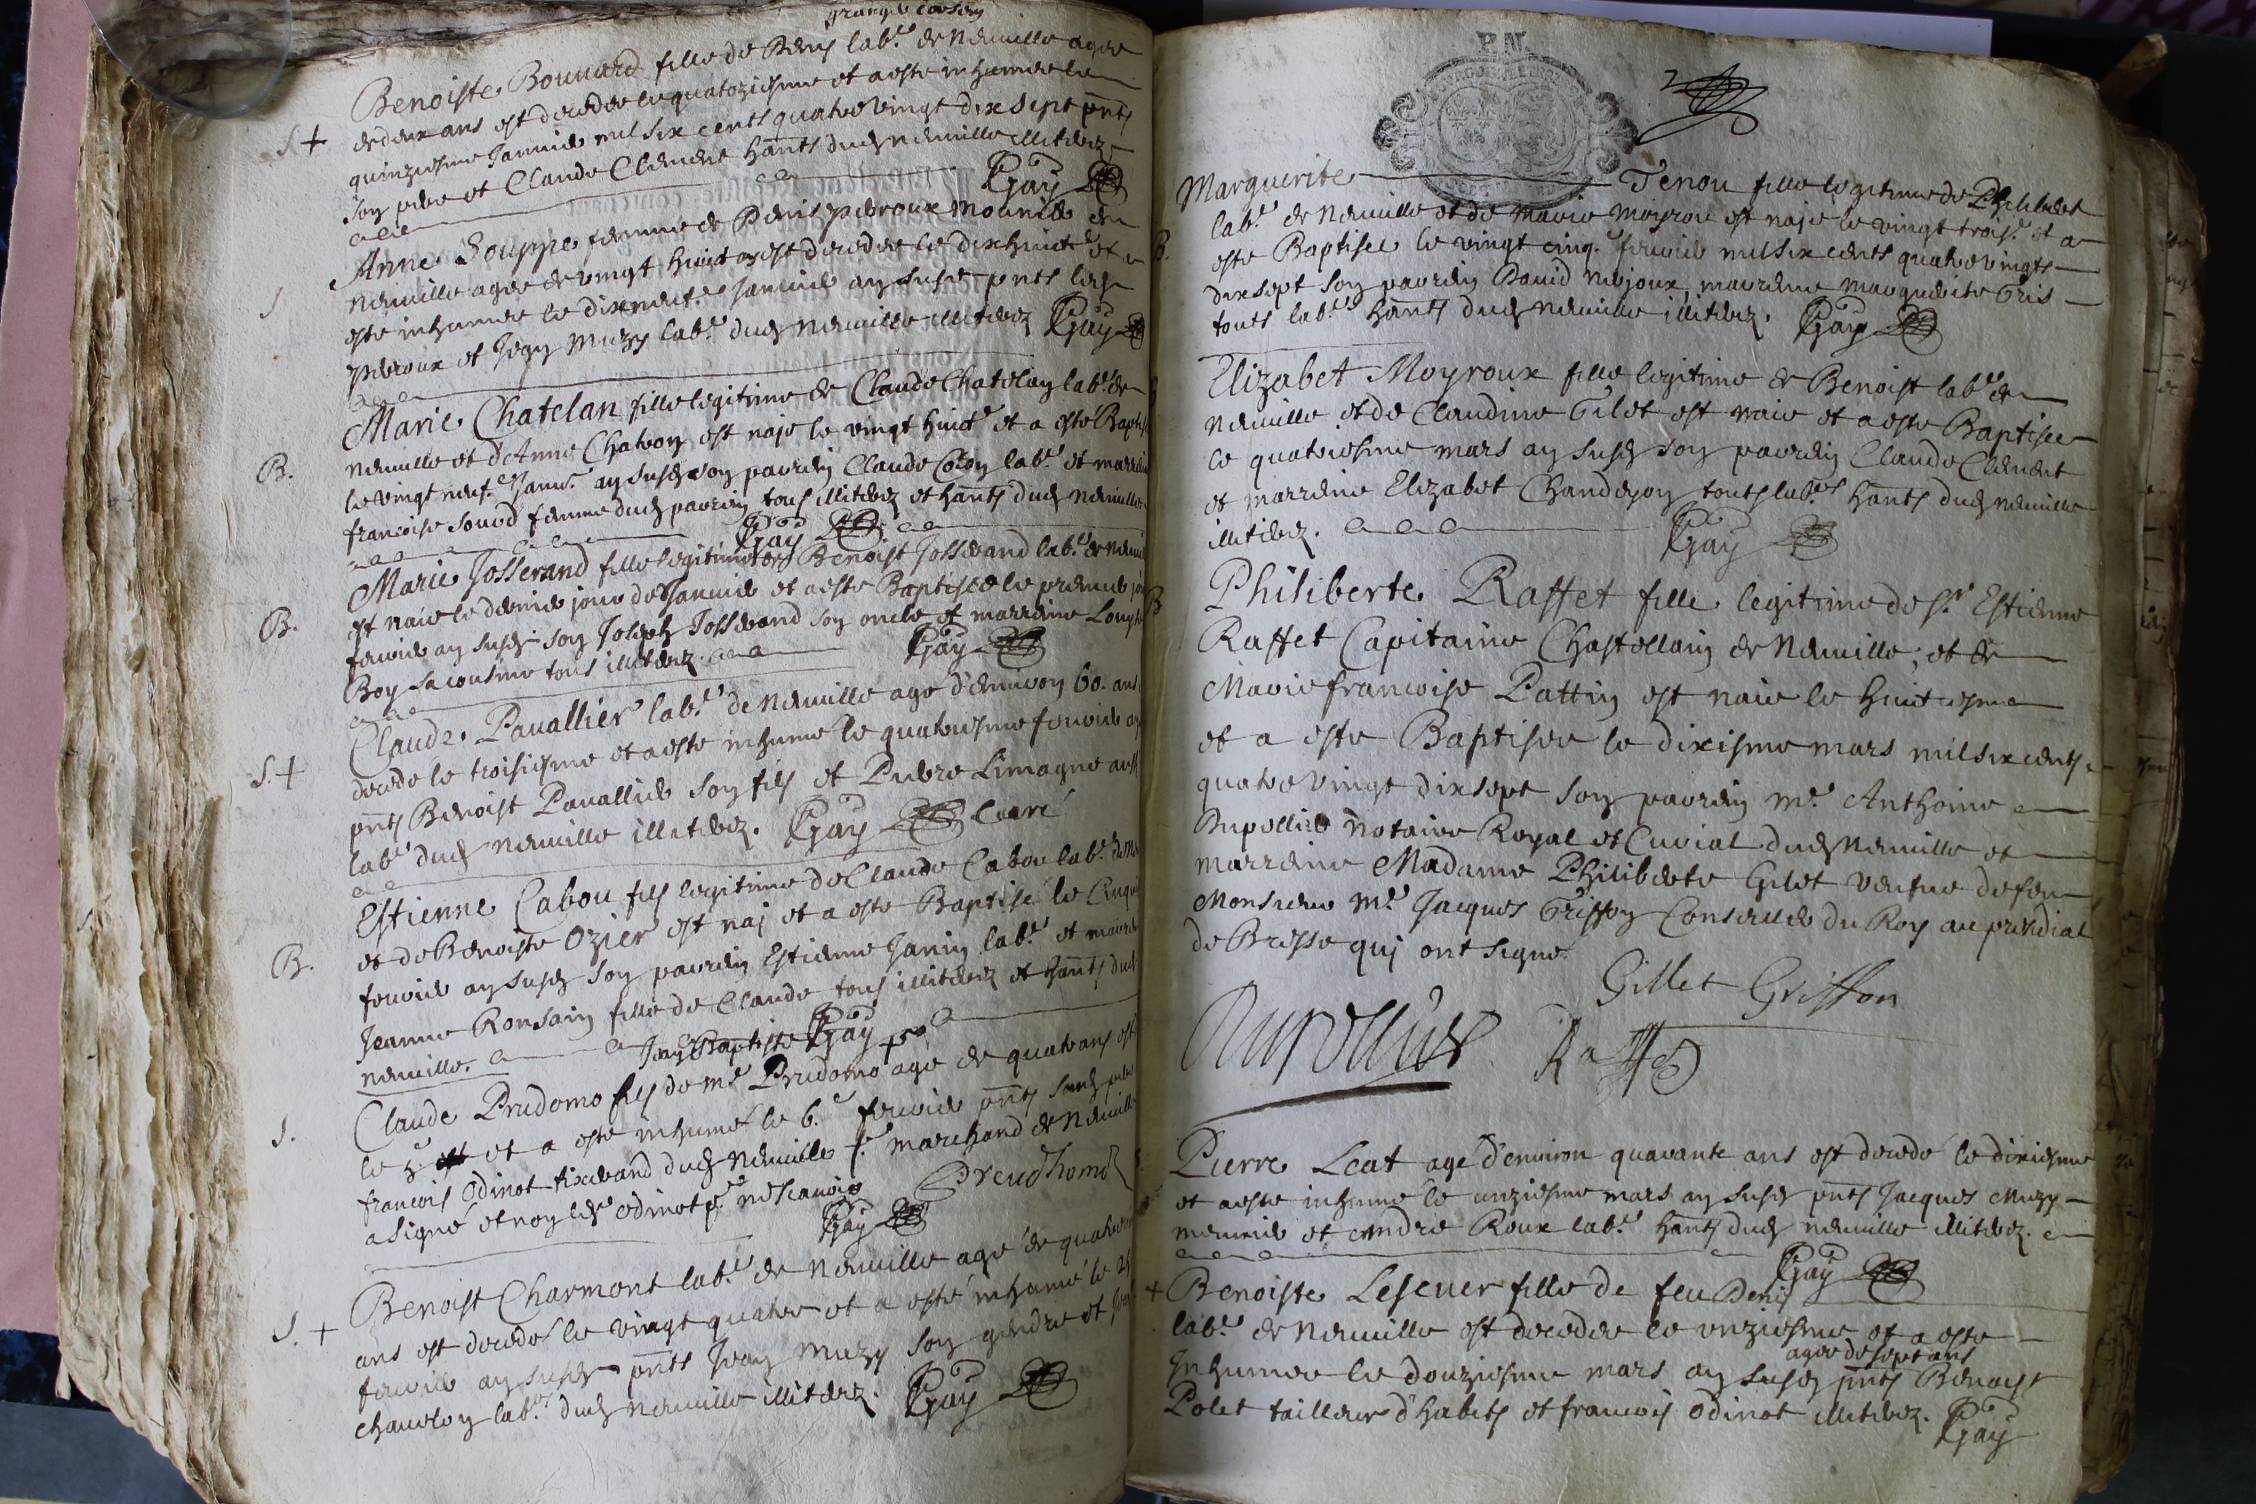 Benoiste Bouuard fille de Denis lab.r de Neuuille agee
de deux ans est decedee le quatoziesme et a esté inhumée le
S. +
quinziesme Januier mil six cents quatre vingt dix sept pnts
son pere et Claude Clement hants dud Neuuille illiterez
Gay
Anne Souppe femme de Denis Perroux Mounier de
Neuuille agee de vingt huict est decedee le dixhuict et a
S
esté inhumee le dixneuf.e Januier an susd pnts led
Perroux et Jean Muzy lab.r dud Neuuille illiterez Gay
Marie Chatelan fille legitime de Claude Chatelan lab.r de
Neuuille et d'Anne Chatron est naje le vingt huict.e et a esté Baptis
B.
le vingt neuf.e Janur. an susd son parrein Claude Coton lab.r et marrein
francoise femme dud parrein tous illiterez et hants dud Neuuille
Gay
Marie Josserand fille legitime de Benoist Josserand lab.r de Neuui
B.
est naie le dernier jour de Januier et a esté Baptisée le premier
feurier an susd son Joseph Josserand son oncle et marreine
Boy sa cousine tous illiterez
Gay
Claude Pauallier lab.r de Neuuille agé d'enuiron 60. ans
S. +
decedé le troisiesme et a esté inhumé le quatriesme feurier
pnts Benoist Pauallier son fils et Pierre Limagne
lab.r dud Neuuille illiterez. Gay Curé
Estienne Cabou fils legitime de Claude Cabou lab.r
B.
et de Benoiste Ozier est naj et a esté Baptisé le
feurier an susd son parrein Estienne Janin lab.r et
Jeanne Ronsain fille de Claude tous illiterez et hants dud
Neuuille. Jean Baptiste Gay
Claude Prudomo fils de m.e Prudomo agé de quatre ans
S.
le 5 et a esté inhumé le 6.e feurier pnts
francois Odinot tixerand dud Neuuille marchand de Neuuille
a signé et non led odinot
Preudhome
Gay
Benoist Charmont lab.r de Neuuille agé de
S. +
ans est decedé le vingt quatre et a esté inhumé le 25
feurier an susd pnts Jean Muzy son gendre et
lab.r dud Neuuille illiterez. Gay
P.N.
2
Marguerite Tenou fille legitime de Philibert
lab.r de Neuuille et de Marie Moyrou est naje le vingt trois.e et a
B.
esté Baptisee le vingt cinq.e feurier mil six cents quatre vingts
dix sept son parrein Dauid Nejoux, marreine Marguerite Gris
touts lab.r hants dud Neuuille illiterez. Gay
Elizabet Moyroux fille legitime de Benoist lab.r de
Neuuille et de Claudine Gilet est naie et a esté Baptisee
le quatriesme mars an susd son parrein Claude Clement
et marreine Elizabet touts lab.rs hants dud Neuuille
illiterez. Gay
B
Philiberte Raffet fille legitime de S.r Estienne
Raffet Capitaine Chastellain de Neuuille, et de
Marie francoise Pattin est naie le huictiesme
et a esté Baptisee le dixiesme mars mil six cents
quatre vingt dix sept son parrein m.e Anthoine
Dupellier Notaire Royal et Curial dud Neuuille et
marreine Madame Philiberte Gilet veufue de feu
Monsieur m.e Jacques Griffon Conseiller du Roy au presidial
de Bresse qui ont signé.
Gillet Griffon
Dupellier Raffet
Pierre Leat agé d'enuiron quarante ans est decedé le dixiesme
et a esté inhumé le unziesme mars an susd pnts Jacques Muzy
meunier et Andre Roux lab.r hants dud Neuuille illiterez.
Gay
+ Benoiste Lescuer fille de feu Denis
lab.r de Neuuille est decedee le unziesme et a esté
agee de sept ans
Inhumee le douziesme mars an susd pnts Benoist
Polet tailleur d'habits et francois Odinot illiterez. Gay